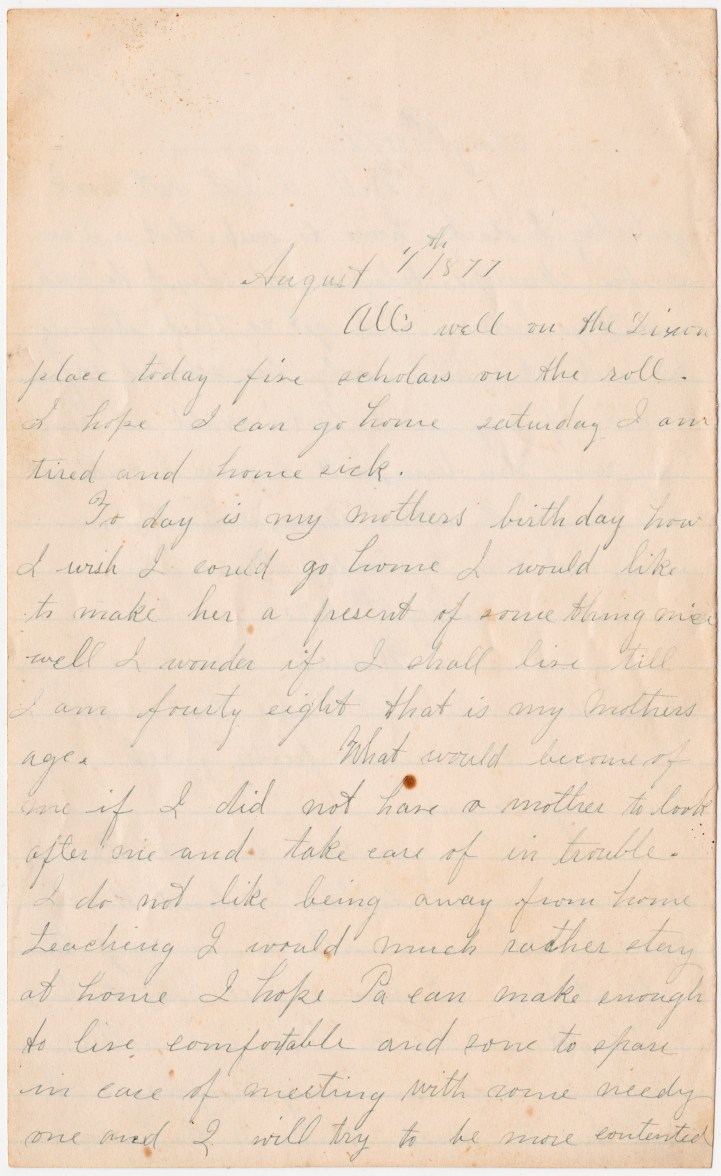 August 7th 1877
All's well on the Dixon
place today five scholars on the roll.
I hope I can go home saturday I am
tired and home sick.
To day is my mothers birthday how
I wish I could go home I would like
to make her a present of some thing nice
well I wonder if I shall live till
I am fourty eight that is my mothers
age. What would become of
me if I did not have a mother to look
after me and take care of in trouble.
I do not like being away from home
teaching I would much rather stay
at home I hope Pa can make enough
to live comfortable and some to spare
in case of meeting with some needy
one and I will try to be more contented